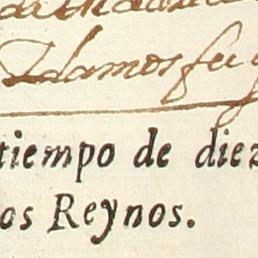 damos fe y
tiempo de diez
os Reynos.